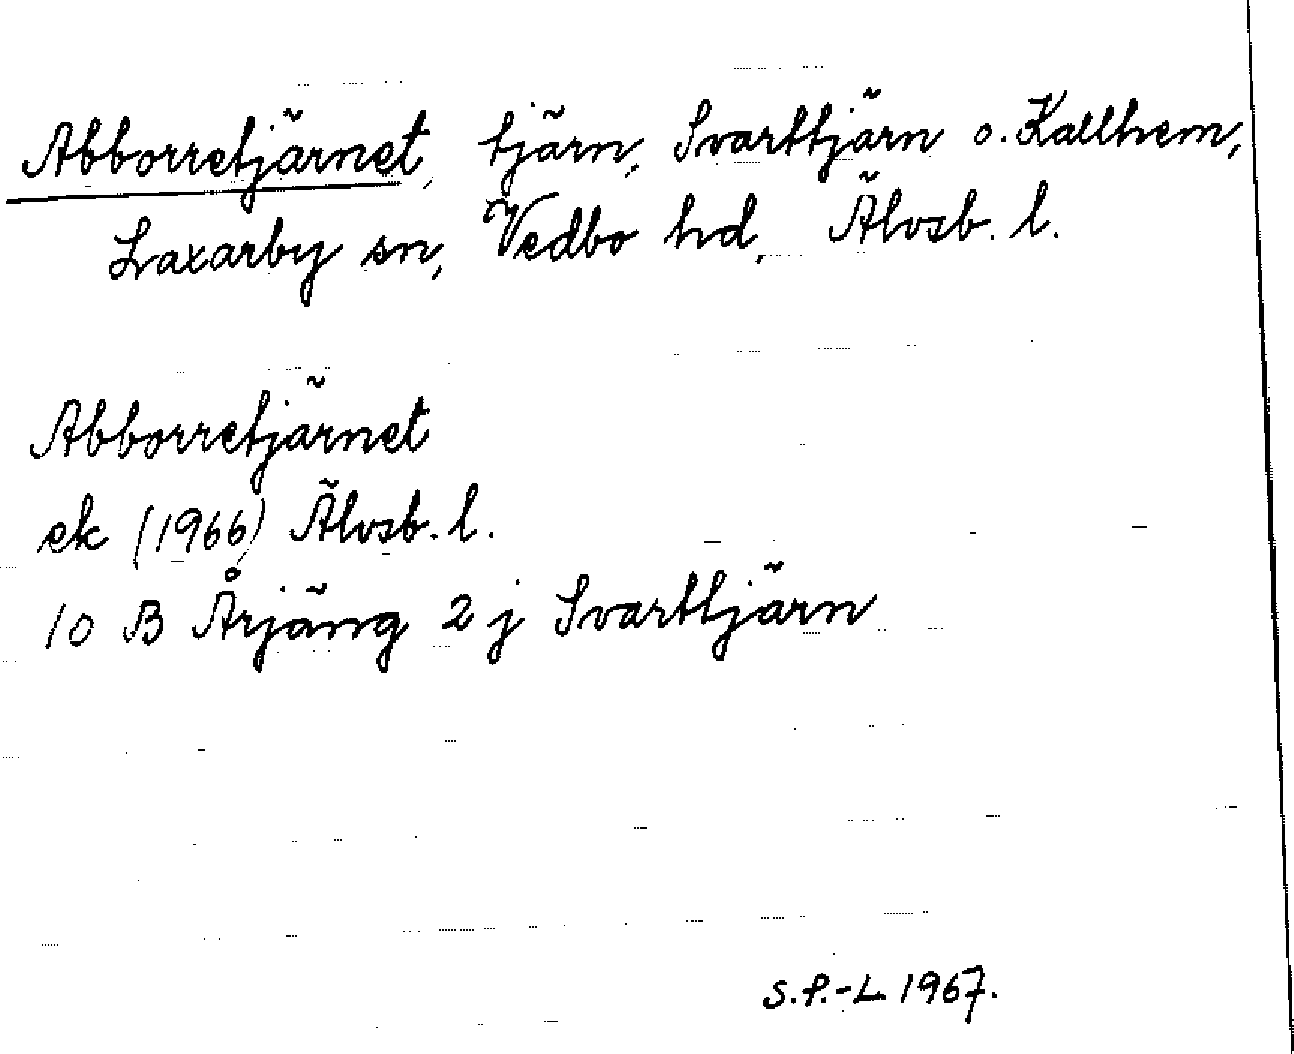 Abborretjärnet, tjärn, Svarttjärn o. Kallhem,
Laxarby sn, Vedbo hd, Älvsb. l.
Abborretjärnet
ek (1966) Älvsb. l.
10 B Årjäng 2 j Svarttjärn
S.P.-L 1967.